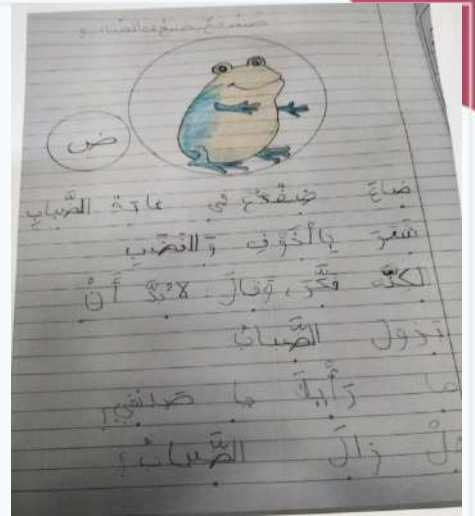 ض
ضاعَ ضِفْدَع في غابة الضَّبابِ
شَعَرَ بِاالْخَوْفِ وَالغَضَبِ
لكِنَّه فَكَّرَ، وَقالَ: لا بُدَّ أَنْ
يَذول الضَّبابُ
ما رَأْيُكَ يا صَديقي؟
هلْ زالَ الضَّبابُ؟